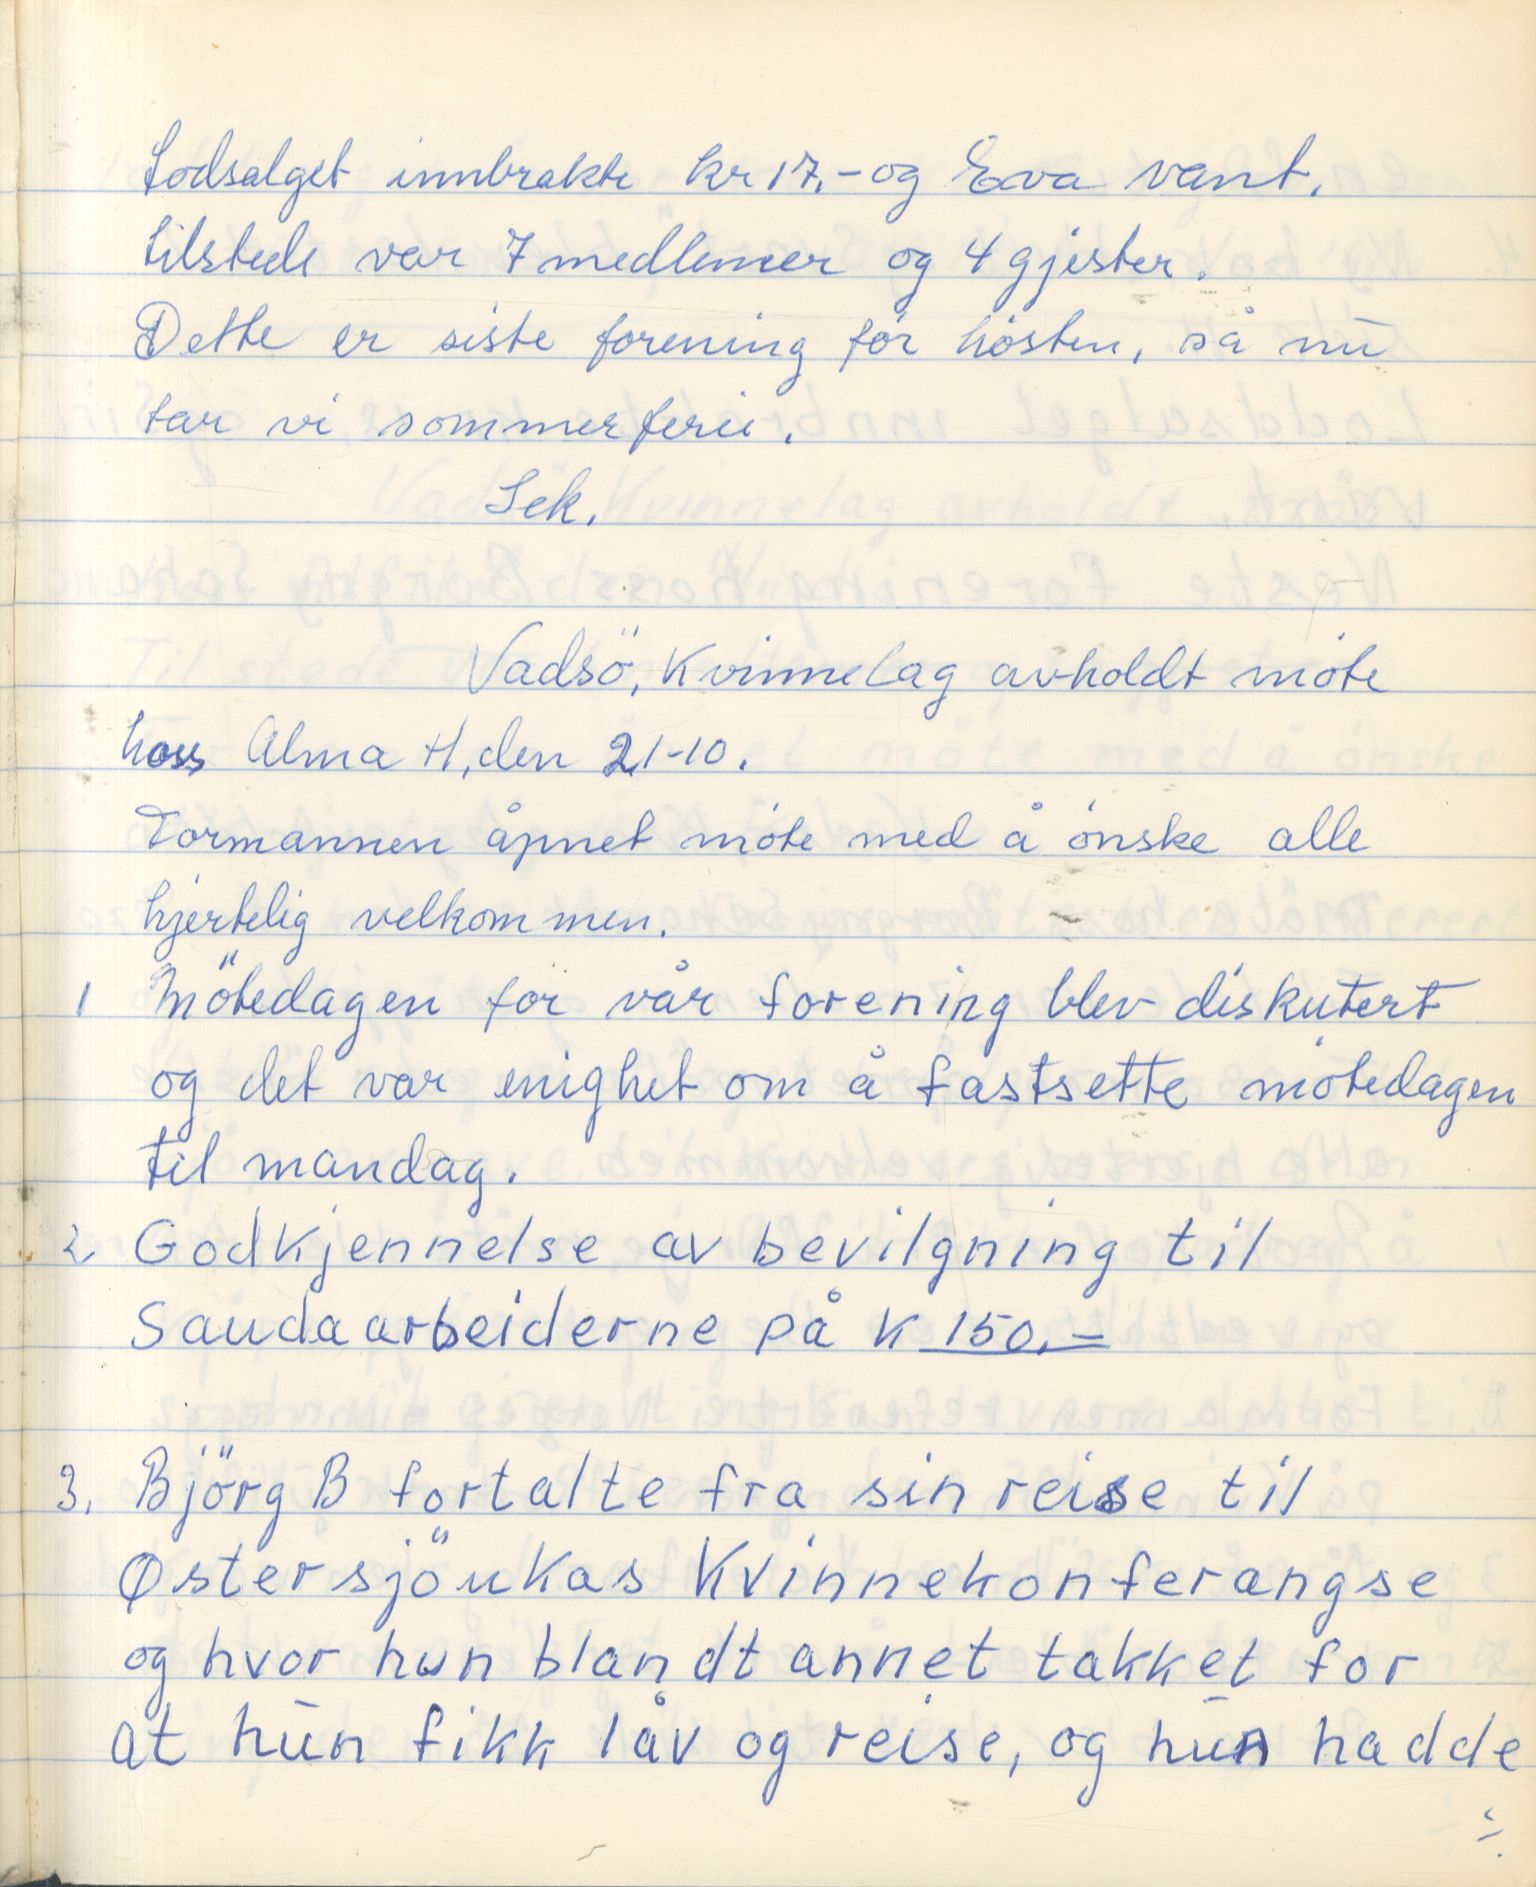 Lodsalget innbrakte kr 17.- og Eva vant.
tilstede var 7 medlemer og 4 gjester.
Dette er siste forening før høsten, så nu
tar vi sommerferie.
Sek.
Vadsö, Kvinnelag avholdt møte
hoss Alma H, den 21-10.
Formannen åpnet møte med å ønske alle
hjertelig velkommen.
1 Mötedagen for vår forening blev diskutert
og det var enighet om å fastsette møtedagen
til mandag.
2 Godkjennelse av bevilgning til
Saudaarbeiderne på K 150.-
3. Björg B fortalte fra sin reise til
Østersjöukas Kvinnekonferangse
og hvor hun blandt annet takket for
at hun fikk låv og reise, og hun hadde